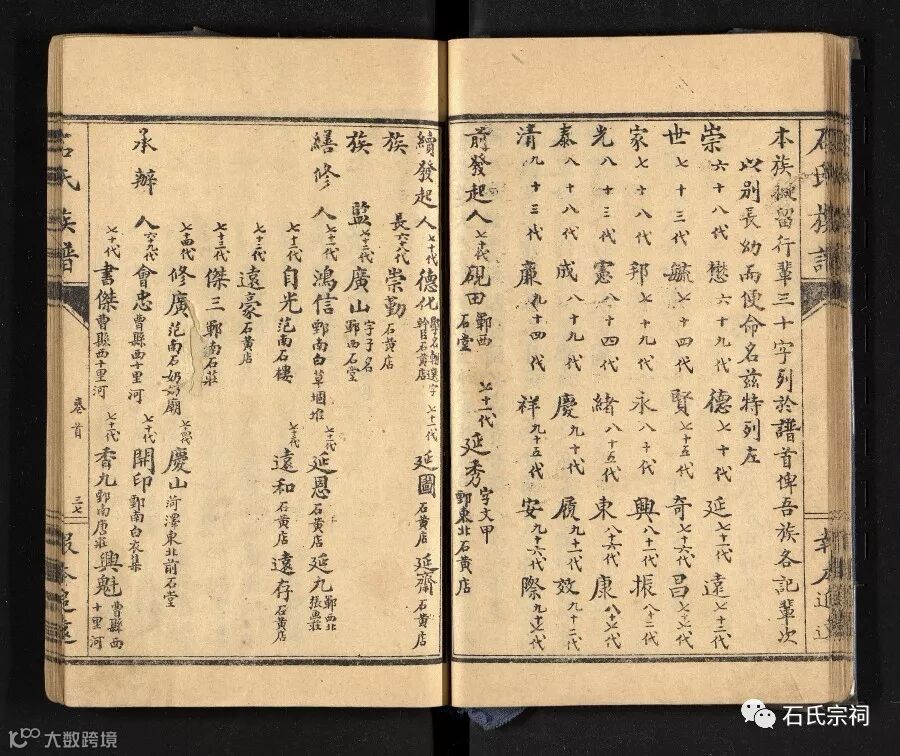 本族擬留行輩三十字列於譜首俾吾族各記輩次
以别長幼而使命名兹特列左
崇六十八代 懋六十九代 德七十代 延七十一代 遠七十二代
世七十三代 毓七十四代 賢七十五代 奇七十六代 昌七十七代
家七十八代 邦七十九代 永八十代 興八十一代 振八十二代
光八十三代 憲八十四代 緒八十五代 東八十六代 康八十七代
泰八十八代 成八十九代 慶九十代 履九十一代 效九十二代
清九十三代 廉九十四代 祥九十五代 安九十六代 際九十七代
前發起人 七十代 硯田 鄄西石堂 七十一代 延秀 字文甲 鄄東北石黄店
續發起人 七十代 德化 石黄店 七十一代 延圖 石黄店 延齋 石黄店
族長 六十八代 崇勤 石黄店
族監 七十三代 廣山 字子名 鄄西石堂
繕修人 七十代 鴻信 鄄南白草堌堆 七十一代 延恩 石黄店 延九 鄄西北張魚莊
七十二代 自光 范南石樓 七十二代 遠和 石黄店 遠存 石黄店
七十二代 遠豪 石黄店
七十三代 傑三 鄄南石莊
七十四代 修廣 范南石奶奶廟 七十四代 慶山 菏澤東北前石堂
承辦人 六十九代 會忠 曹縣西十里河 七十代 開印 鄄南白衣集
七十代 書傑 曹縣西十里河 七十代 香九 鄄南唐莊 興魁 曹縣西十里河
石氏族譜
卷首
三七
報本追遠
石氏族譜
報本追遠
石氏宗祠
大数跨境